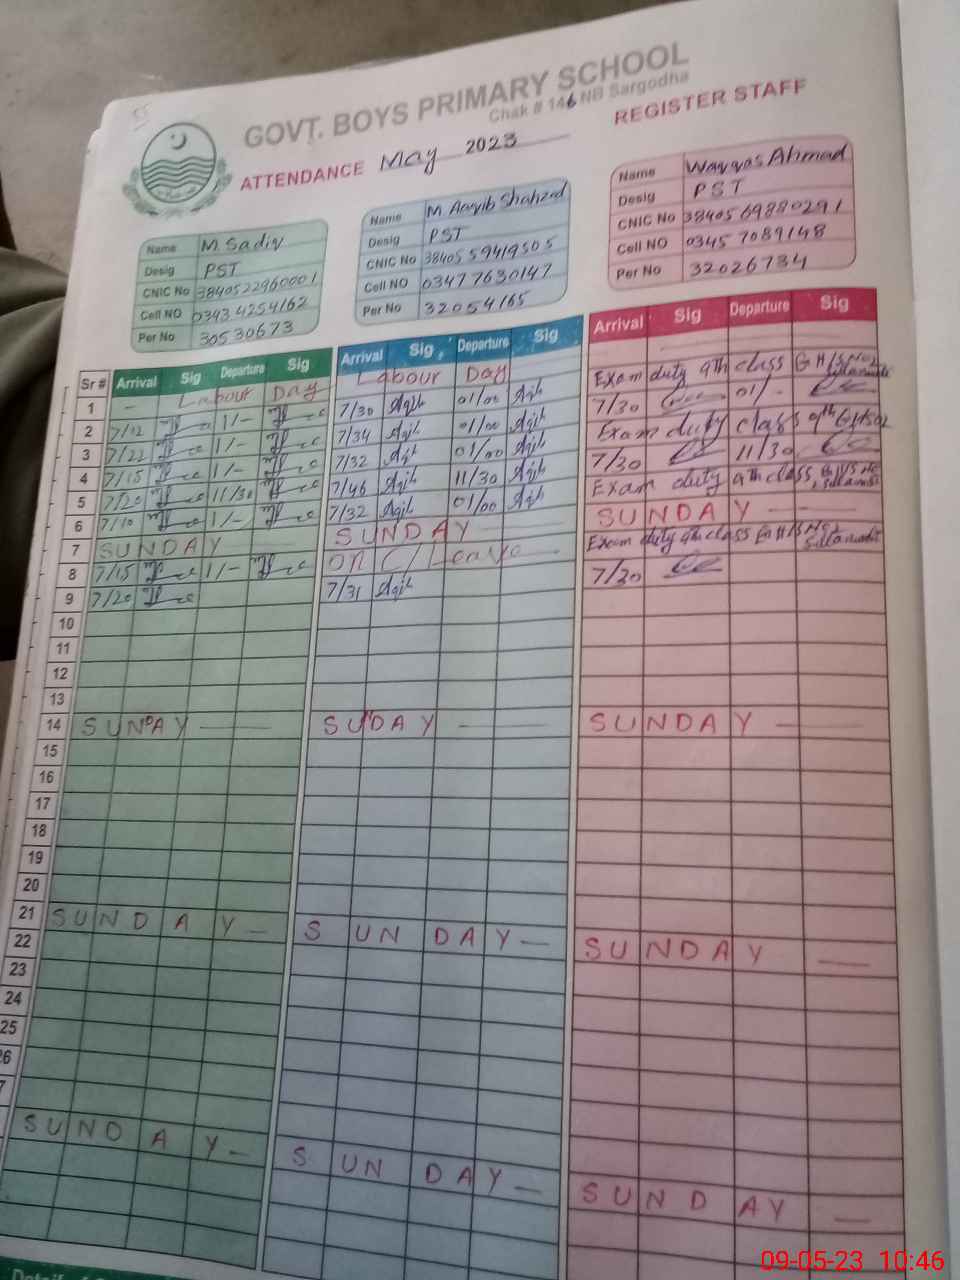 GOVT. BOYS PRIMARY SCHOOL
Chak # 146 NB Sargodha
ATTENDANCE May 2023 REGISTER STAFF
Name M. Sadiq
Desig PST
CNIC No 3840522960001
Cell NO 0343 4254162
Per No 30530673
Name M Aaqib Shahzad
Desig PST
CNIC No 38405 59419505
Cell NO 03477630147
Per No 32054165
Name Waqqas Ahmad
Desig PST
CNIC No 3840569880291
Cell NO 0345 7089148
Per No 32026734
Sr # Arrival Sig Departure Sig Arrival Sig Departure Sig Arrival Sig Departure Sig
1 - Labour Day Labour Day
2 7/12 1/- 7/30 Aqib 01/00 Aqib Exam duty 9th class
3 7/22 1/- 7/34 Aqib 01/00 Aqib 7/30 01/-
4 7/15 1/- 7/32 Aqib 01/00 Aqib Exam duty class 9th
5 7/20 11/30 7/46 Aqib 11/30 Aqib 7/30 11/30
6 7/10 1/- 7/32 Aqib 01/00 Aqib Exam duty 9th class
7 SUNDAY SUNDAY SUNDAY
8 7/15 1/- on C/Leave Exam duty 9th class
9 7/20 7/31 Aqib 7/30
10
11
12
13
14 SUNDAY SUDAY SUNDAY
15
16
17
18
19
20
21 SUNDAY SUNDAY SUNDAY
22
23
24
25
26
7
SUNDAY SUNDAY SUNDAY
09-05-23 10:46